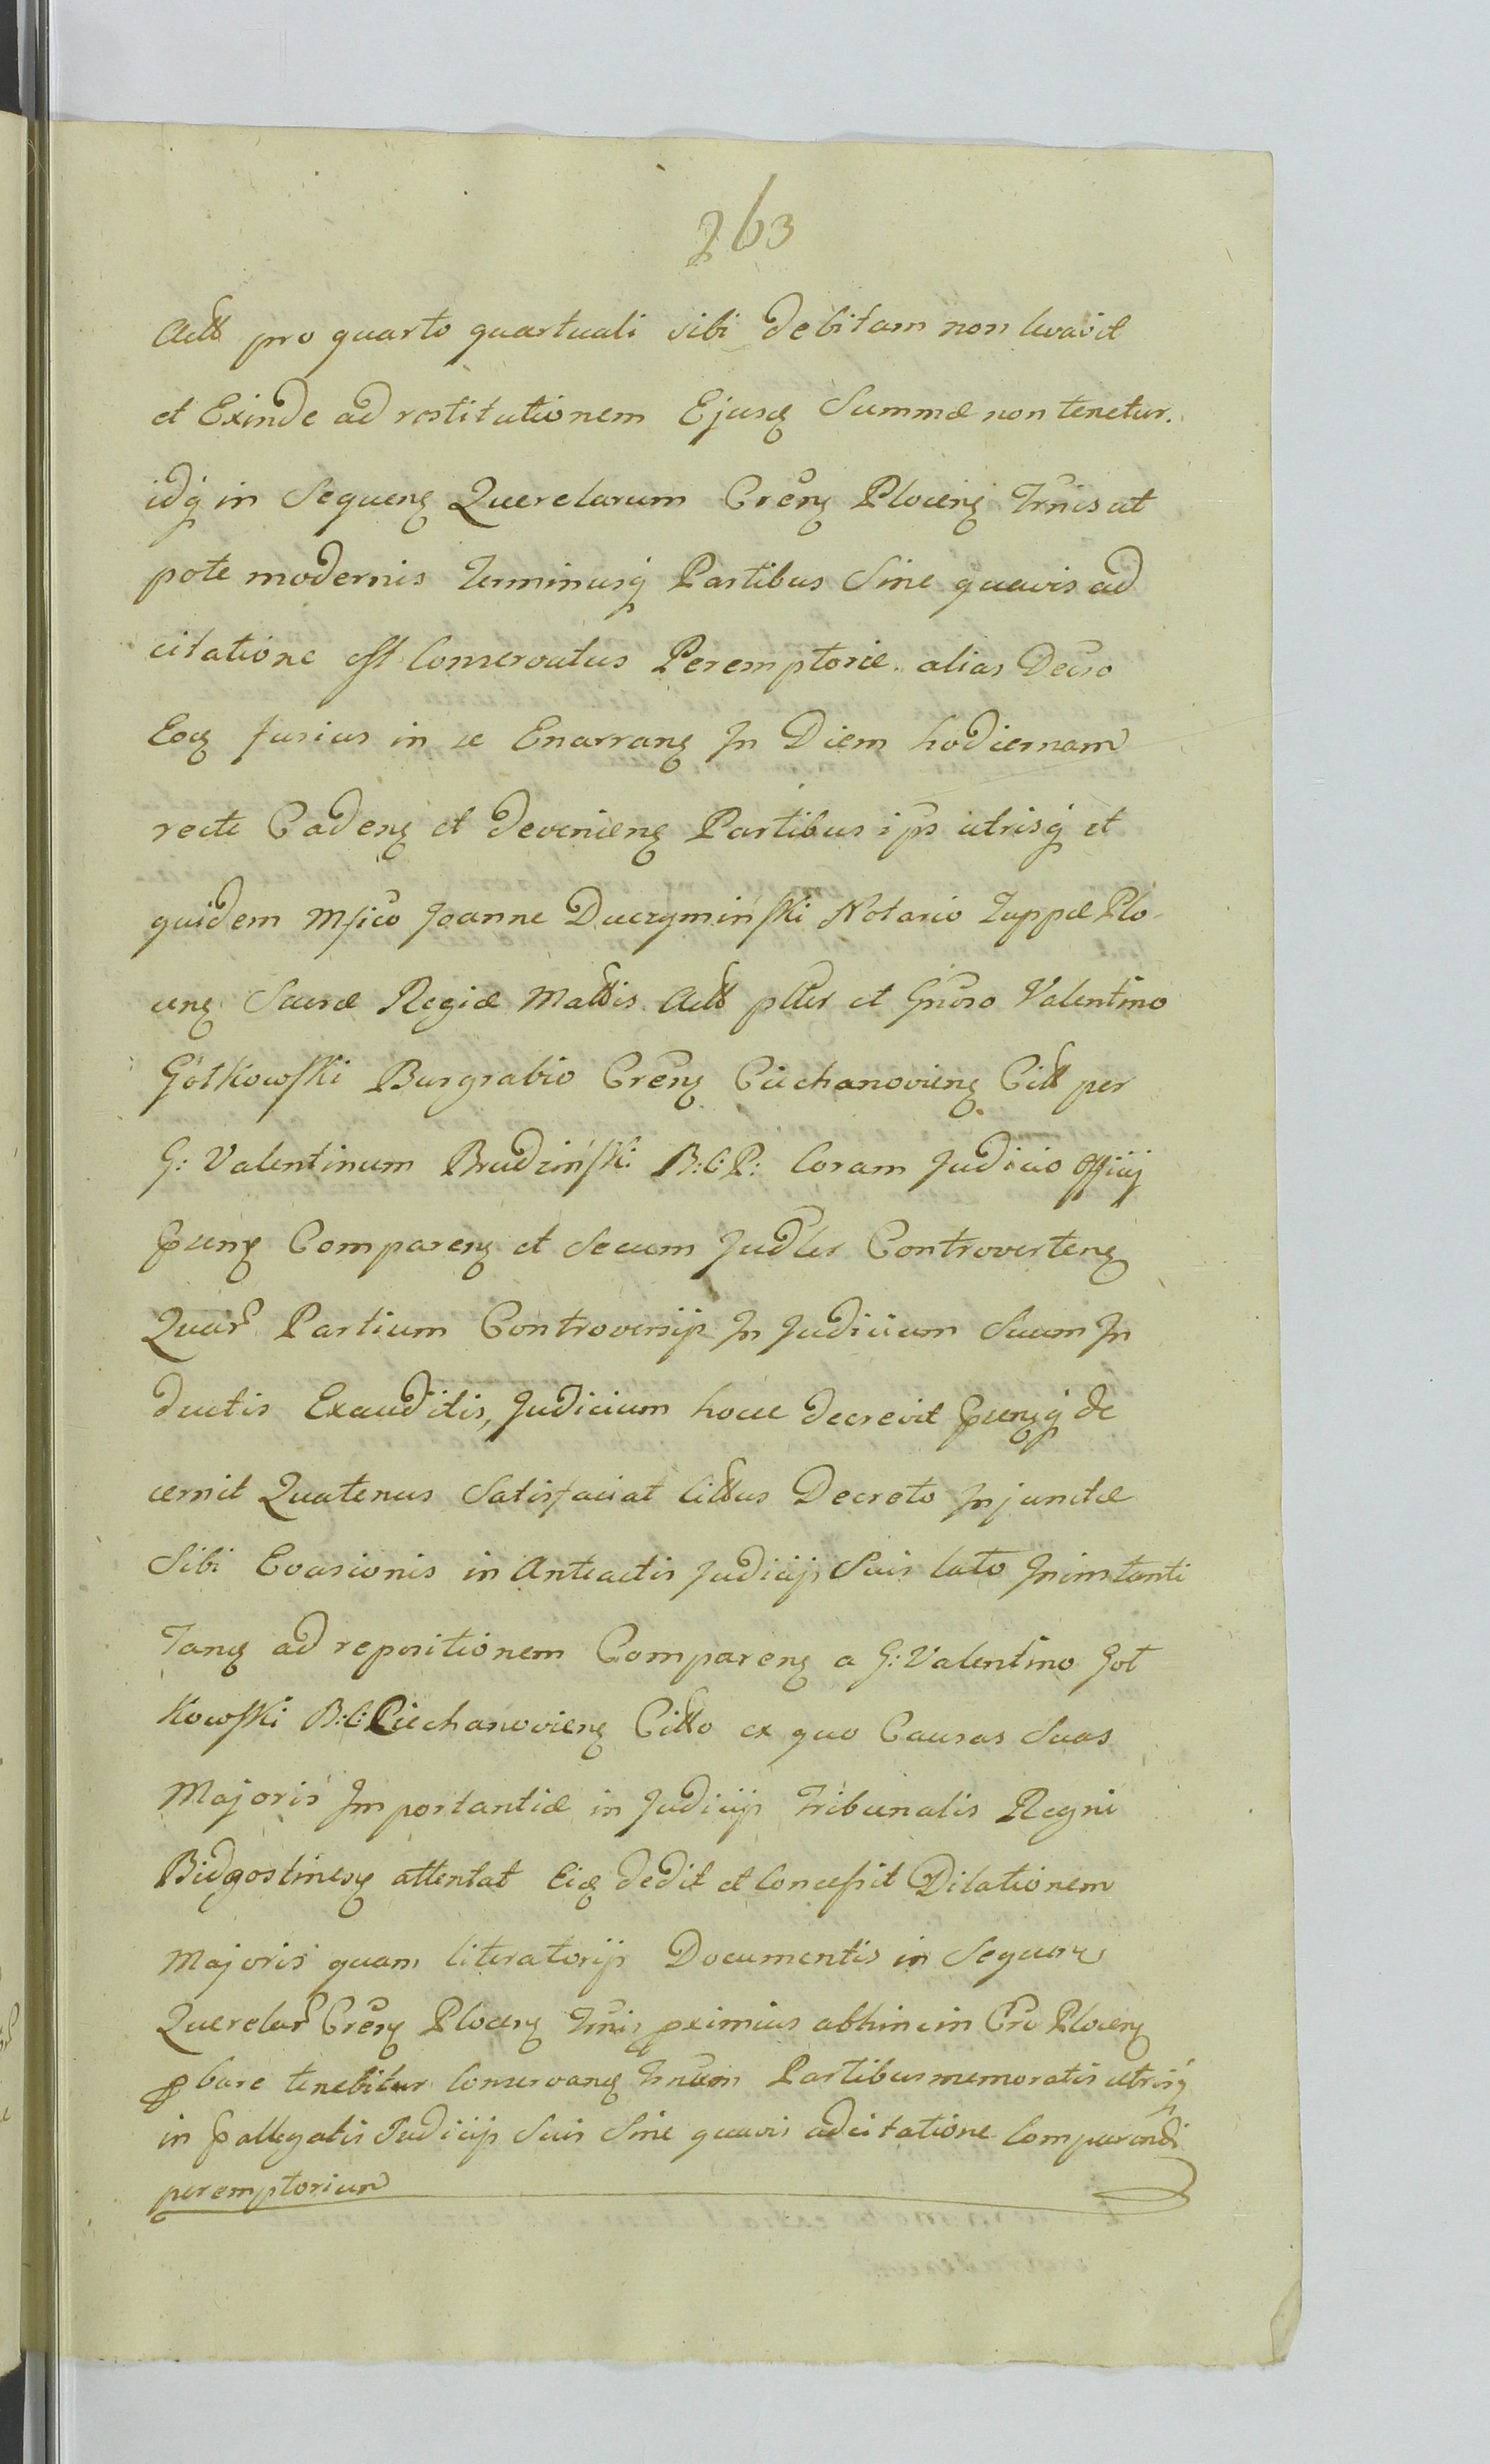 263
Actt pro quarto quartuali sibi debitam non levavit
et Exinde ad restitutionem Ejusq Summæ non tenetur.
idq in Sequenq Querelarum Crenq Plocenq Trnis ut
pote modernis Terminusq Partibus Sine quavis ad
citatione est Conservatus Peremptoriæ. alias Decro
Eoq fusius in se Enarranq In Diem hodiernam
recte Cadenq et devenienq Partibus ips utrisq et
quidem Mfico Joanne Duczymiński Notario Zuppæ Plo
cenq Sacræ Regiæ Mattis Actt plter et Gnroso Valentino
Gołkowski Burgrabio Crenq Ciechanovienq Citt per
G: Valentinum Brudziński B:C:P: Coram Judicio Officij
psenq Comparenq et Secum Judler Controvertenq
Quar Partium Controversijs In Judicium Suum In
ductis Exauditis, Judicium hocce decrevit psensq de
cernit Quatenus Satisfaciat Cittus Decreto Injunctæ
Sibi Evasionis in Anteactis Judicijs Suis lato Ininstanti
Tanq ad repositionem Comparenq a G: Valentino Goł
kowski B:C: Ciechanovienq Citto ex quo Causas Suas
Majoris Importantiæ in Judicijs Tribunalis Regni
Bidgostinesq attentat Eiq dedit et Concessit Dilationem
Majoris quam literatorijs Documentis in Sequenq
Querelar Crenq Plocenq Trnis pximius abhinc in Cro Plocenq
pbare tenebitur Conservanq Trnum Partibus memoratis utrisq
in pallegatis Judicijs Suis Sine quavis adcitatione Comparendi
peremptorium